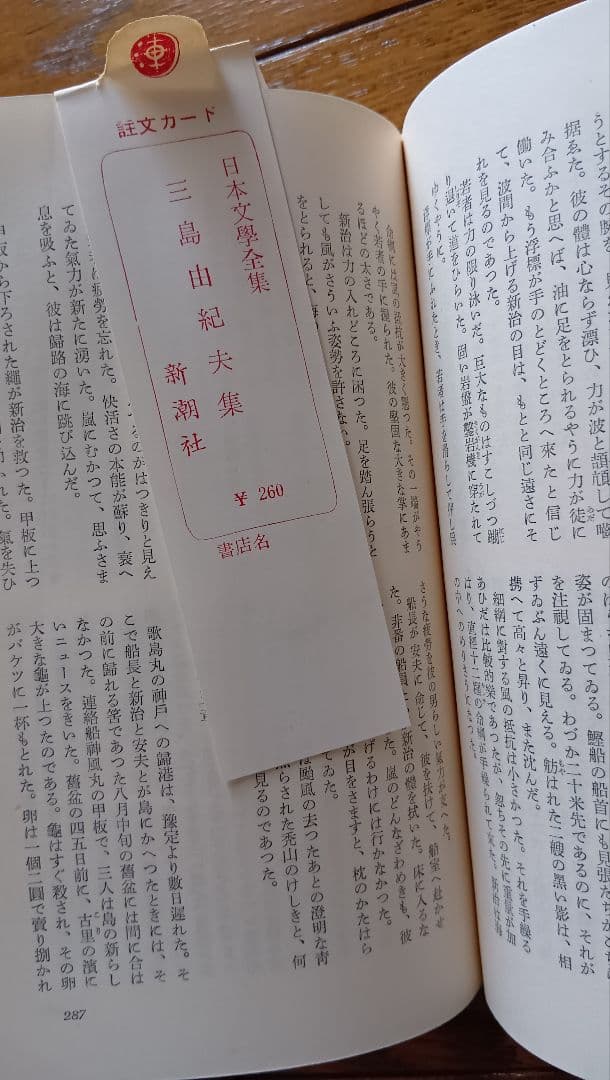 註文カード
日本文學全集
三島由紀夫集
新潮社
¥ 260
書店名
うとするその
据ゑた。彼の體は心ならず漂ひ、力が波と頡頏して
み合ふかと思へば、油に足をとられるやうに力が徒に
働いた。もう浮標が手のとどくところへ來たと信じ
て、波間から上げる新治の目は、もとと同じ遠さにそ
れを見るのであつた。
若者は力の限り泳いだ。巨大なものはすこしづつ
り退いて道をひらいた。固い岩盤が鑿岩機に穿たれて
ゆくやうに。
やく若者の手に握られた。彼の堅固な大きな掌にあま
るほどの太さである。
新治は力の入れどころに困つた。足を踏ん張らうを
しても風がさういふ姿勢を許さない。
をとられる
はつきりと見え
疲勞を忘れた。快活さの本能が蘇り、衰へ
てゐた氣力が新たに湧いた。嵐にむかつて、思ふさま
息を吸ふと、彼は歸路の海に跳び込んだ。
甲板から下ろされた繩が新治を救つた。甲板に上つ
姿が固まつてゐる。鰹船の船首にも見張たちが
を注視してゐる。わづか二十米先であるのに、それが
ずゐぶん遠くに見える。舫はれた二艘の黒い影は、相
携へて高々と昇り、また沈んだ。
細綱に對する風の抵抗は小さかつた。それを手繰る
あひだは比較的樂であつたが、忽ちその先に重量が加
はり、
船長が安夫に命じて、彼を扶けて、船室へ赴かせ
た。非番の船員
新治の體を拭いた。床に入るな
嵐のどんなざわめきも、彼
げるわけには行かなかつた。
が目をさますと、枕のかたはら
てゐた。
は颱風の去つたあとの澄明な青
照らされた禿山のけしきと、何
見るのであつた。
歌島丸の神戸への歸港は、豫定より數日遲れた。そ
こで船長と新治と安夫とが島にかへつたときには、そ
の前に歸れる筈であつた八月中旬の舊盆には間に合は
なかつた。連絡船神風丸の甲板で、三人は島の新らし
いニュースをきいた。舊盆の四五日前に、古里の濱に
大きな龜が上つたのである。龜はすぐ殺され、その卵
がバケツに一杯もとれた。卵は一個二圓で賣り捌かれ
287